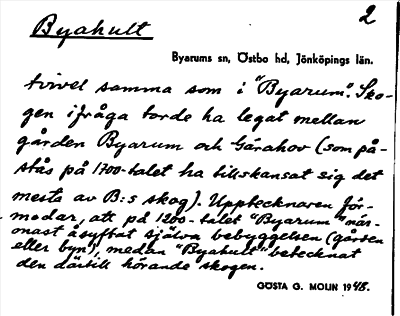 2
Byahult
Byarums sn, Östbo hd, Jönköpings län.
tvivel samma som i "Byarum". Sko-
gen ifråga torde ha legat mellan
gården Byarum och Gärahov (som på-
stås på 1700-talet ha tillskansat sig det
mesta av B:s skog). Upptecknaren för-
modar, att på 1200-talet "Byarum" när-
mast åsyftat själva bebyggelsen (gården
eller byn), medan "Byahult" betecknat
den därtill hörande skogen.
GÖSTA G. MOLIN 1948.